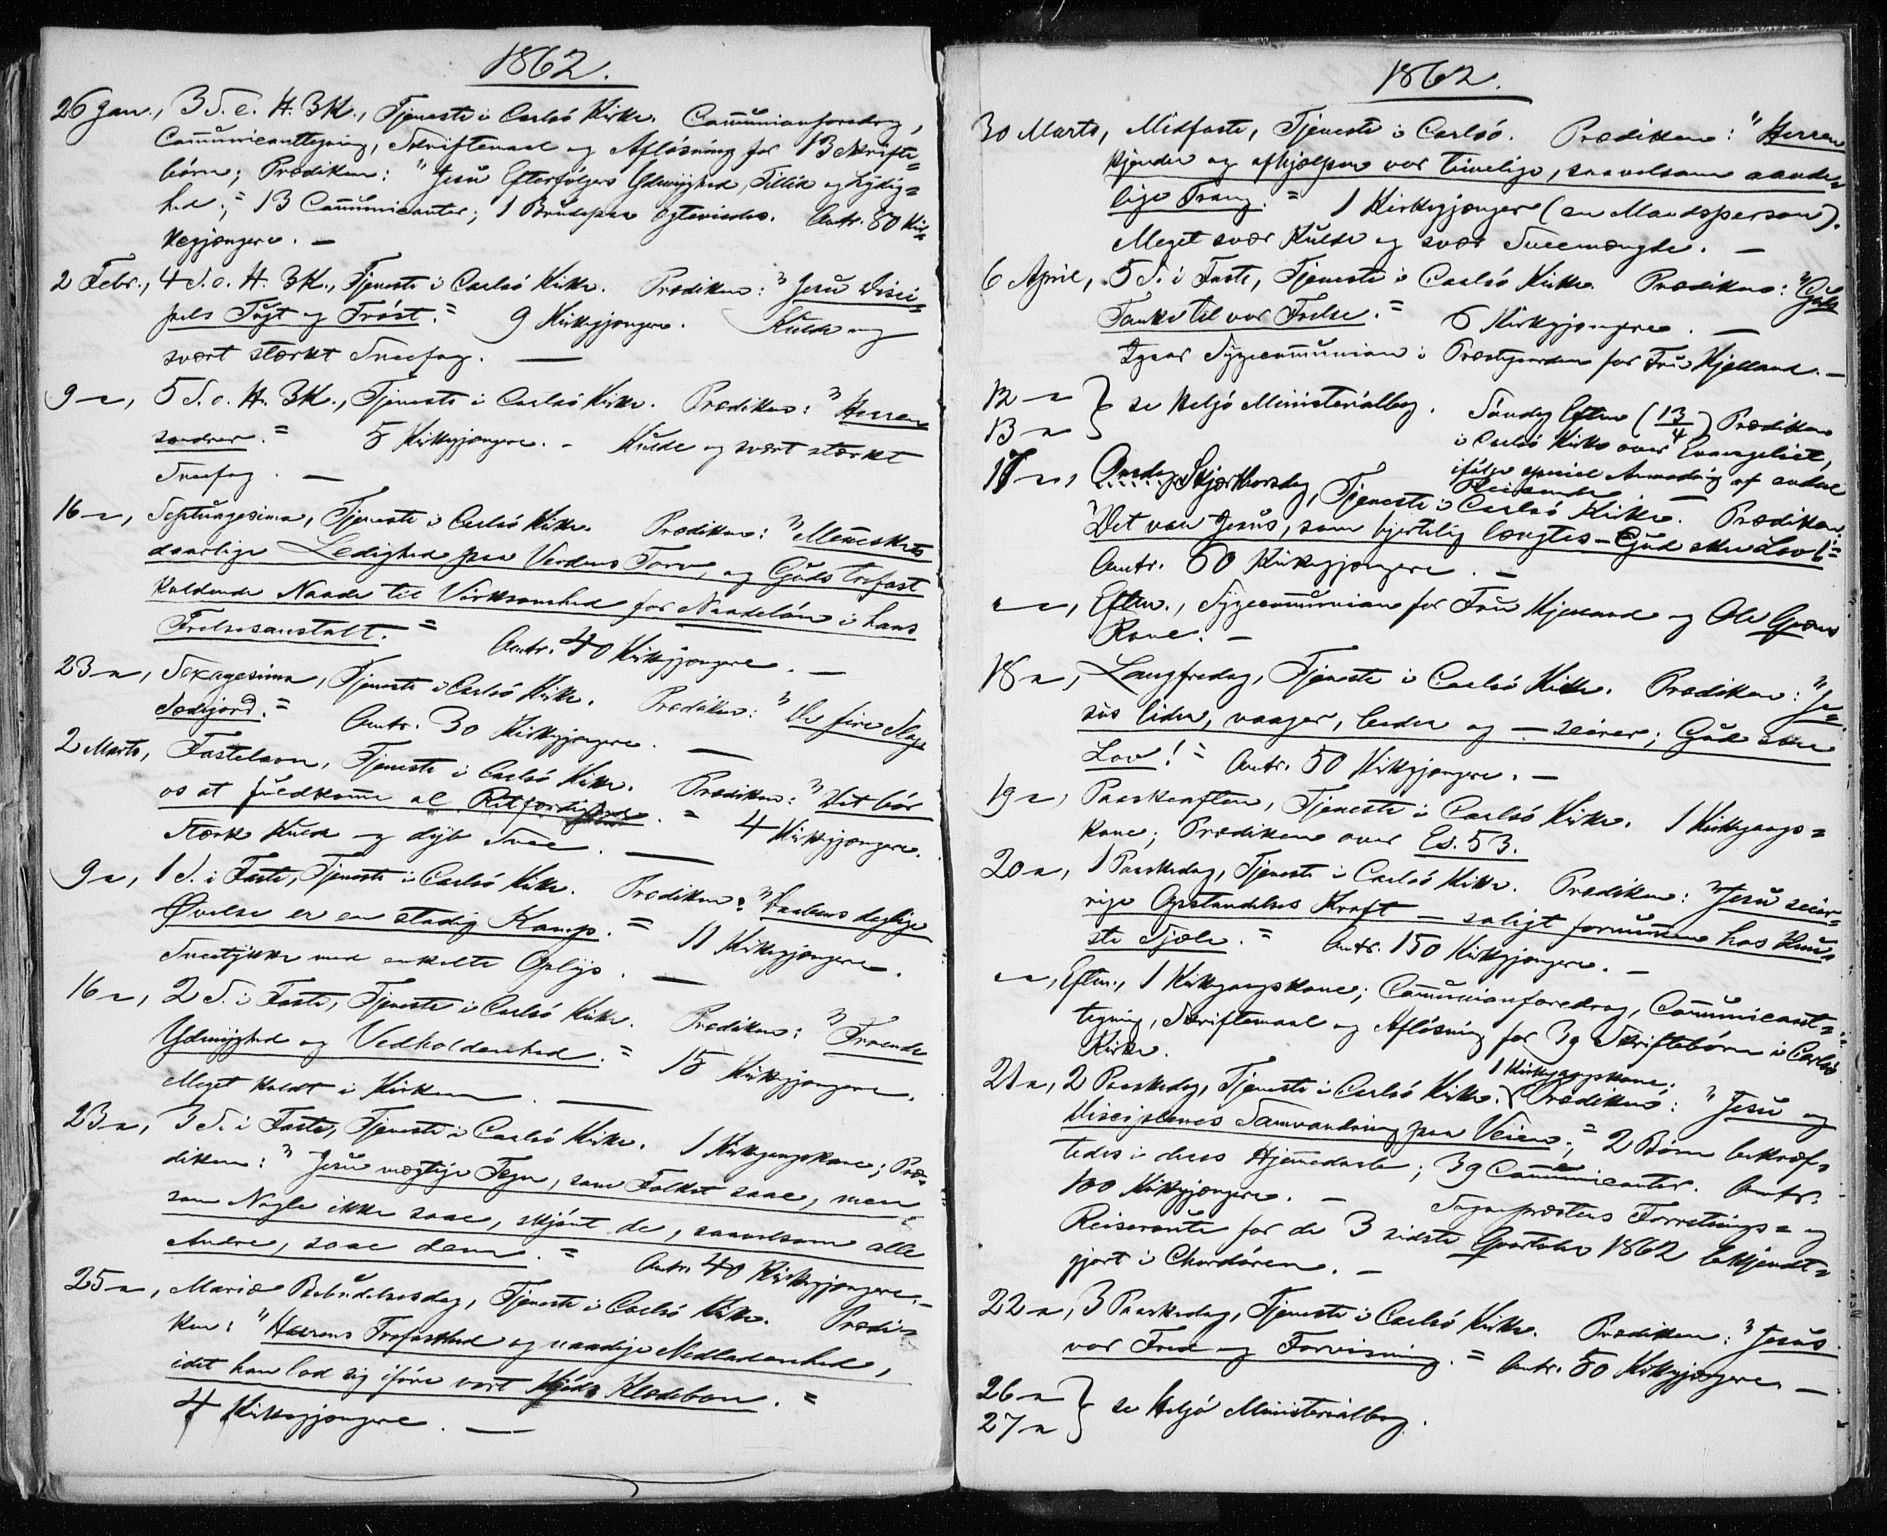 1862.
26 Jan., 3 S. e. H. 3 K., Tjeneste i Carlsö Kirke. Communionforedrag,
Communicanttegning, Skriftemaal og Aflösning for 13 Skrifte-
börn; Prædiken: "Jesu Efterfölgers Ydmyghed, Tillid og Lydig-
hed."; 13 Communicanter; 1 Brudepar egteviedes. Antr. 80 Kir-
kegjængere. —
2 Febr., 4 S. e. H. 3 K., Tjeneste i Carlsö Kirke. Prædiken: "Jesu Disci-
pels Tugt og Tröst." 9 Kirkegjængere. Kulde og
svært stærkt Sneefog. —
9 —, 5 S. e. H. 3 K., Tjeneste i Carlsö Kirke. Prædiken: "Herren
sondrer." 5 Kirkegjængere. — Kulde og svært stærkt
Sneefog. —
16 —, Septuagesima, Tjeneste i Carlsö Kirke. Prædiken: "Menneskets
daarlige Ledighed paa Verdens Torv, og Guds trofast
kaldende Naade til Virksomhed for Naadelön i hans
Frelsesanstalt." Antr. 40 Kirkegjængere. —
23 —, Sexagesima, Tjeneste i Carlsö Kirke. Prædiken: "De fire Slags
Sædejord." Antr. 30 Kirkegjængere. —
2 Marts, Fastelavn, Tjeneste i Carlsö Kirke. Prædiken: "Det bör
os at fuldkomme al Retfærdighed." 4 Kirkegjængere.
Stærk Kulde og dyb Snee. —
9 —, 1 S. i Faste, Tjeneste i Carlsö Kirke. Prædiken: "Daabens daglige
Övelse er en stadig Kamp." 11 Kirkegjængere.
Sneetykke med enkelte Oplys. —
16 —, 2 S. i Faste, Tjeneste i Carlsö Kirke. Prædiken: "Troende
Ydmyghed og Vedholdenhed." 15 Kirkegjængere.
Meget koldt i Kirken. —
23 —, 3 S. i Faste, Tjeneste i Carlsö Kirke. 1 Kirkegangskone; Præ-
diken: "Jesu mægtige Tegn, som Folket saae, men
som Nogle ikke saae, skjönt de, saavelsom alle
Andre, saae dem." Antr. 40 Kirkegjængere. —
25 —, Mariæ Bebudelsesdag, Tjeneste i Carlsö Kirke. Prædi-
ken: "Herrens Trofasthed og naadige Nedladenhed,
idet han lod sig iföre vort Kjöds Klædebon."
4 Kirkegjængere. —
1862.
30 Marts, Midfaste, Tjeneste i Carlsö. Prædiken: "Herren
kjender og afhjælper vor timelige, saavelsom aande-
lige Trang." 1 Kirkegjænger (en Mandsperson).
Meget svær Kulde og svær Sneemængde. —
6 April, 5 S. i Faste, Tjeneste i Carlsö Kirke. Prædiken: "Guds
Tanke til vor Frelse." 6 Kirkegjængere. —
Sygecommunion i Præstgaarden for Fru Kjelland. —
12 —
13 — } se Helgö Ministerialbog. Söndag Efterm. (13/4) Prædiken
i Carlsö Kirke over Evangeliet,
ifölge speciel Anmodning af endeel
Reisende
17 —, Skjærthorsdag, Tjeneste i Carlsö Kirke. Prædiken:
"Det var Jesus, som hjertelig længtes — Gud skee Lov!"
Antr. 60 Kirkegjængere. —
— —, Efterm., Sygecommunion for Fru Kjelland og Ole
Kone. —
18 —, Langfredag, Tjeneste i Carlsö Kirke. Prædiken: "Je-
sus lider, vaager, beder og — seirer; Gud skee
Lov!" Antr. 50 Kirkegjængere. —
19 —, Paaskeaften, Tjeneste i Carlsö Kirke. 1 Kirkegangs-
kone; Prædiken over Es. 53.
20 —, 1 Paaskedag, Tjeneste i Carlsö Kirke. Prædiken: "Jesu seier-
rige Opstandelses Kraft — saligt fornummen hos
Sjæle." Antr. 150 Kirkegjængere. —
— —, Efterm., 1 Kirkegangskone; Communionforedrag, Communicant-
tegning, Skriftemaal og Aflösning for 39 Skriftebörn i Carlsö
Kirke.
1 Kirkegangskone;
21 —, 2 Paaskedag, Tjeneste i Carlsö Kirke. Prædiken: "Jesu og
Disciplenes Samvandring paa Veien."; 2 Börn bekræf-
tedes i deres Hjemmedaab; 39 Communicanter. Antr.
100 Kirkegjængere. — Sognepræstens Forretnings- og
Reiseroute for de 3 sidste Qvartaler 1862 bekjendt-
gjort i Chordören. —
22 —, 3 Paaskedag, Tjeneste i Carlsö Kirke. Prædiken: "Jesus
vor Fred og Forvisning." Antr. 50 Kirkegjængere. —
26 —
27 — } se Helgö Ministerialbog.